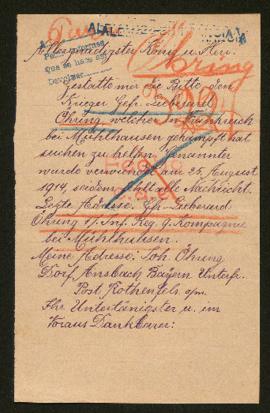 ALEMANIA
Allergnädigster König u. Herr.
Gestatte mir die Bitte den
Krieger Gefr. Lieberard
Öhring welcher in Frankreich
bei Mühlhausen gekämpft hat
suchen zu helfen. Genannter
wurde verwundet am 25. August
1914, seitdem fehlt alle Nachricht.
Letzte Adresse: Gfr. Lieberard
Öhring 1/. Inf. Reg. 9. Kompagnie
bei Mühlhausen.
Meine Adresse: Joh. Öhring
Dorf Ansbach Bayern Unterfr.
Post Rothenfels a/m.
Ihr Untertänigster u. im
Voraus Dankbarer: